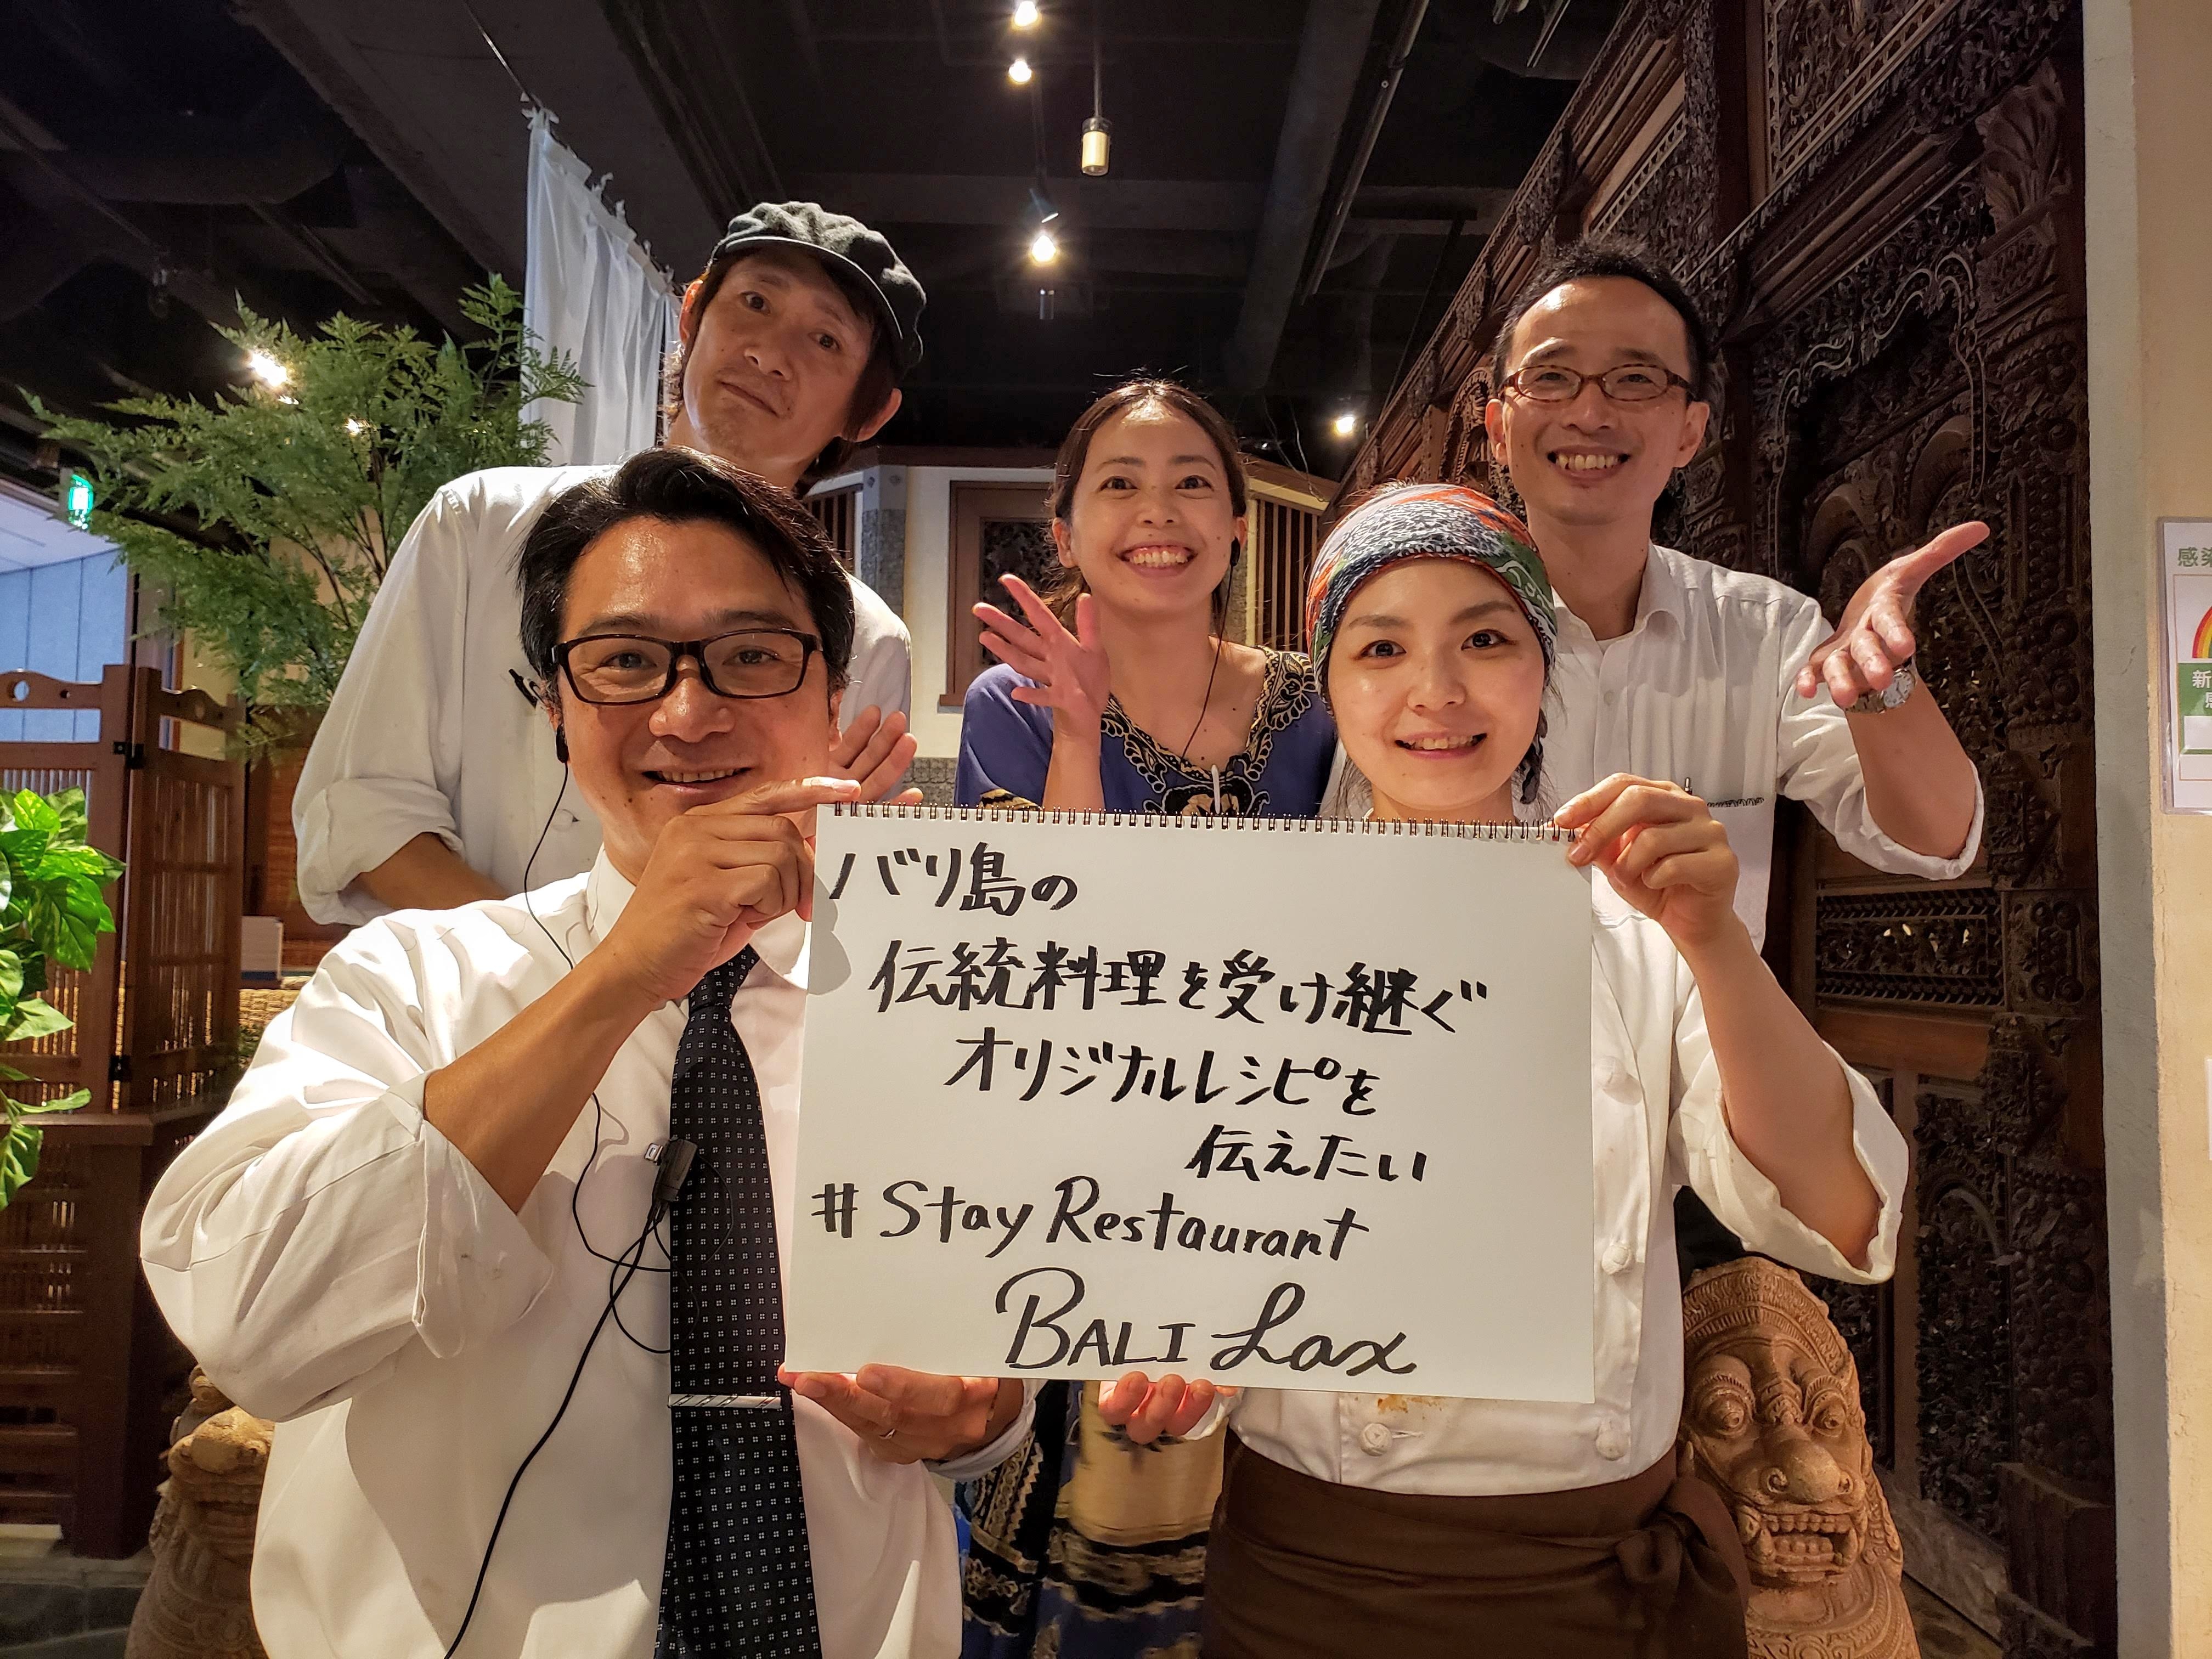 バリ島の
伝統料理を受け継ぐ
オリジナルレシピを
伝えたい
# Stay Restaurant
BALI Lax
感染
新
感